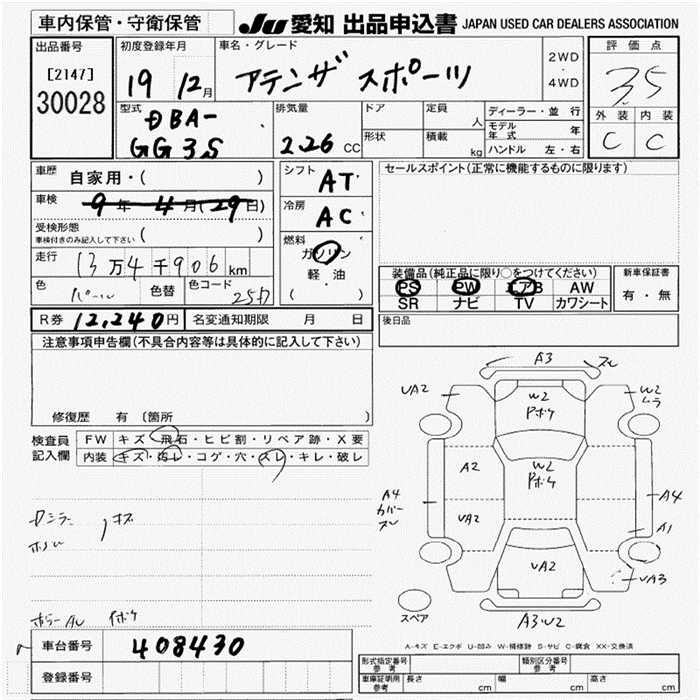 車内保管・守衛保管
JU 愛知 出品申込書 JAPAN USED CAR DEALERS ASSOCIATION
出品番号
[2147]
30028
初度登録年月
19 12月
車名・グレード
アテンザ スポーツ
2WD
・
4WD
評価点
3.5
外装 内装
C C
型式
DBA-
GG3S
排気量
2.26 CC
ドア
形状
定員 人
積載 kg
ディーラー・並行
モデル年式 年
ハンドル 左・右
車歴
自家用・( )
車検
9年4月(29日)
受検形態
車検付きのみ記入して下さい ( )
走行
13万4千906km
色
パール
色替
色コード
25D
シフト
AT
冷房
AC
燃料
ガソリン
軽・油
( ・ )
セールスポイント(正常に機能するものに限ります)
装備品(純正品に限り○をつけてください)
PS PW エアB AW
SR ナビ TV カワシート
新車保証書
有・無
R券 12,240円 名変通知期限 月 日
後日品
注意事項申告欄(不具合内容等は具体的に記入して下さい)
修復歴 有〔箇所 〕
検査員
記入欄
FW キズ・飛石・ヒビ割・リペア跡・X要
内装 キズ・汚レ・コゲ・穴・スレ・キレ・破レ
Dミラー キズ
A3
スレ
UA2
W2
Pボケ
W2
ムラ
A2
W2
Pボケ
A4
カバー
スレ
UA2
A4
A1
UA2
UA3
スペア
A3W2
A-キズ E-エクボ U-凹み W-補修跡 S-サビ C-腐食 XX-交換済
車台番号 408430
登録番号
型式指定番号
参考
類別区分番号
参考
車庫証明用
参考
長さ cm
幅 cm
高さ cm